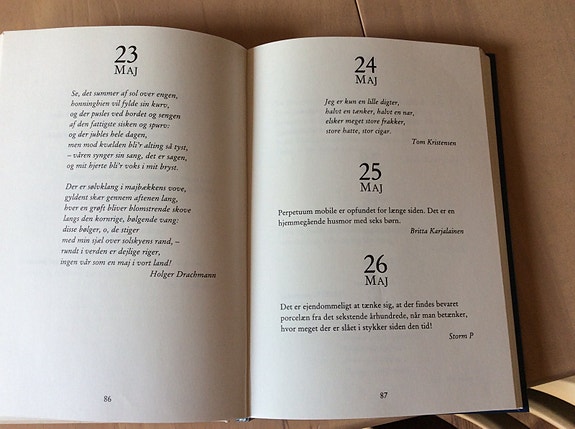 23
MAJ
Se, det summer af sol over engen,
honningbien vil fylde sin kurv,
og der pusles ved bordet og sengen
af den fattigste sisken og spurv:
og der jubles hele dagen,
men mod kvælden bli'r alting så tyst,
– våren synger sin sang, det er sagen,
og mit hjerte bli'r voks i mit bryst.
Der er sølvklang i majbækkens vove,
gyldent skær gennem aftenen lang,
hver en grøft bliver blomstrende skove
langs den kornrige, bølgende vang:
disse bølger, o, de stiger
med min sjæl over solskyens rand, –
rundt i verden er dejlige riger,
ingen vår som en maj i vort land!
Holger Drachmann
86
24
MAJ
Jeg er kun en lille digter,
halvt en tænker, halvt en nar,
elsker meget store frakker,
store hatte, stor cigar.
Tom Kristensen
25
MAJ
Perpetuum mobile er opfundet for længe siden. Det er en
hjemmegående husmor med seks børn.
Britta Karjalainen
26
MAJ
Det er ejendommeligt at tænke sig, at der findes bevaret
porcelæn fra det sekstende århundrede, når man betænker,
hvor meget der er slået i stykker siden den tid!
Storm P
87